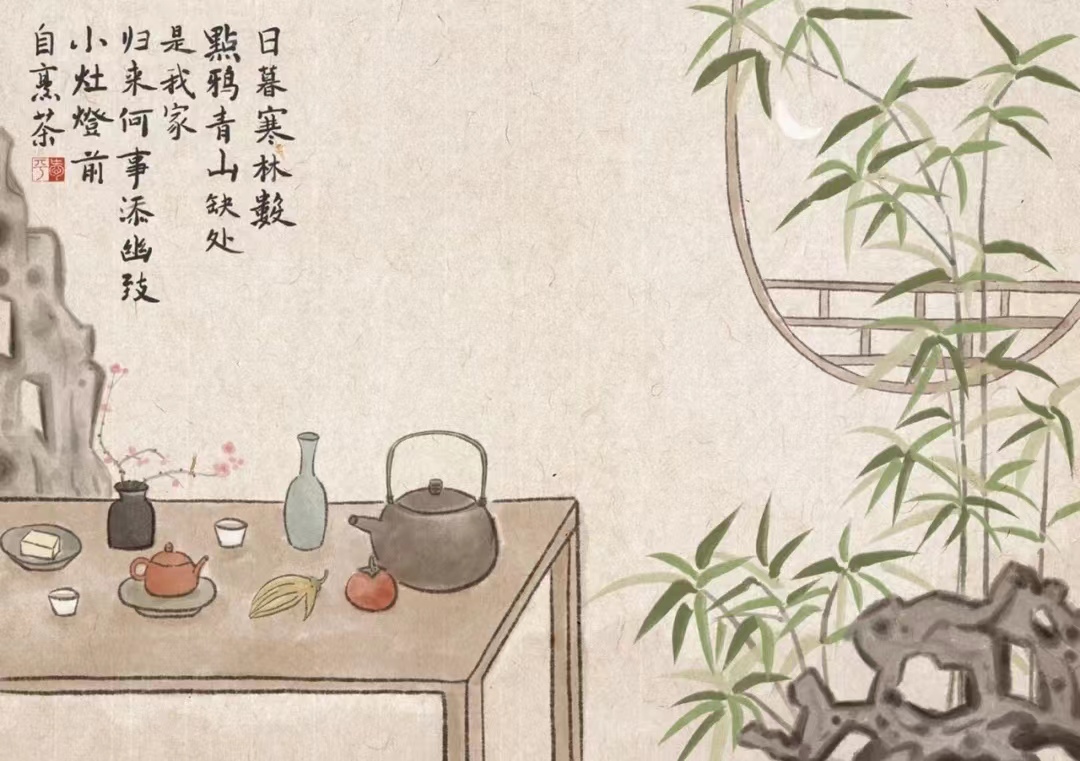 日暮寒林數
點鸦青山缺处
是我家
归来何事添幽致
小灶燈前
自烹茶